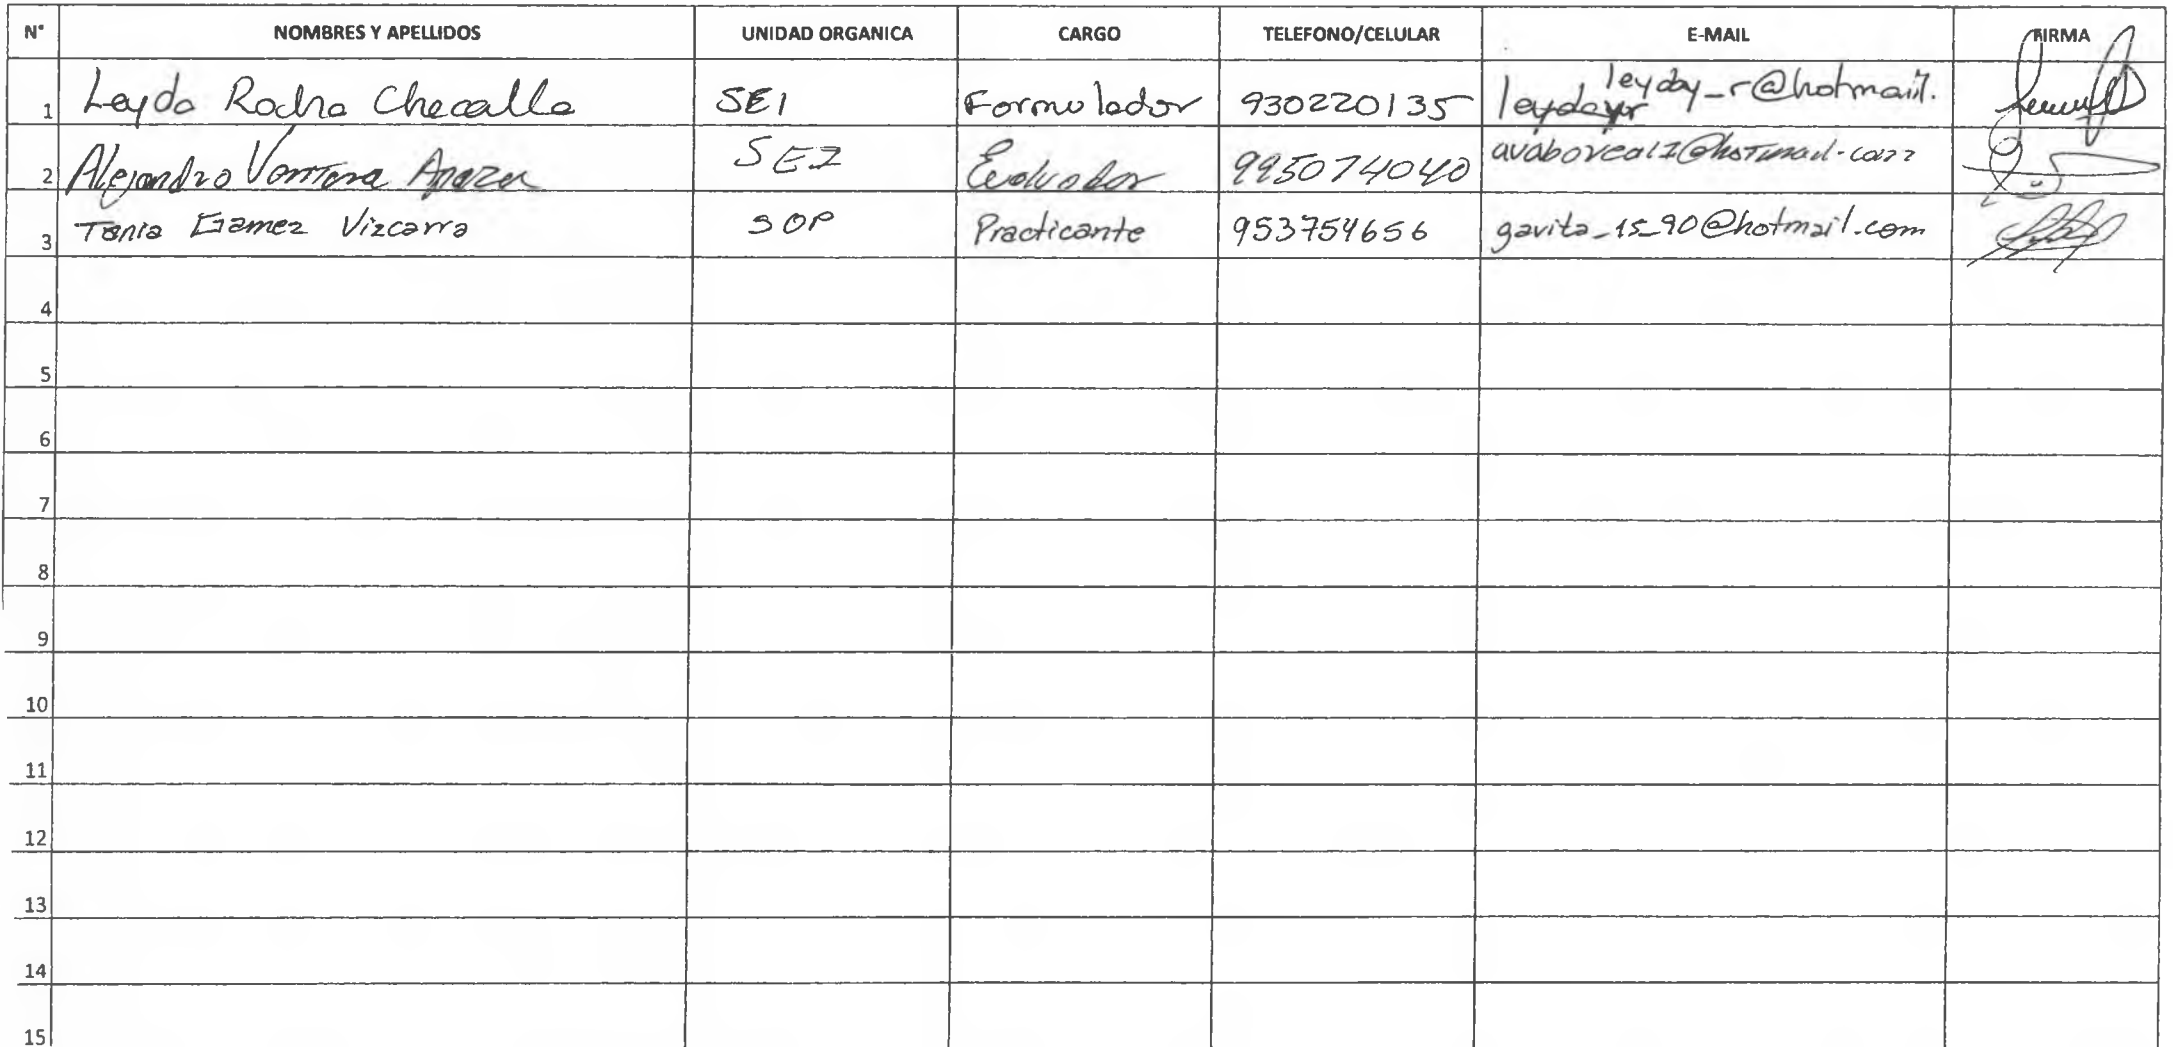 N° NOMBRES Y APELLIDOS UNIDAD ORGANICA CARGO TELEFONO/CELULAR E-MAIL FIRMA
1 Leyda Rocha Checalla SEI Formulador 930220135 leyday_r@hotmail.
2 Alejandro Ventura Apaza SEI Evaluador 995074040
3 Tania Gamez Vizcarra SOP Practicante 953754656 gavita_15_90@hotmail.com
4
5
6
7
8
9
10
11
12
13
14
15